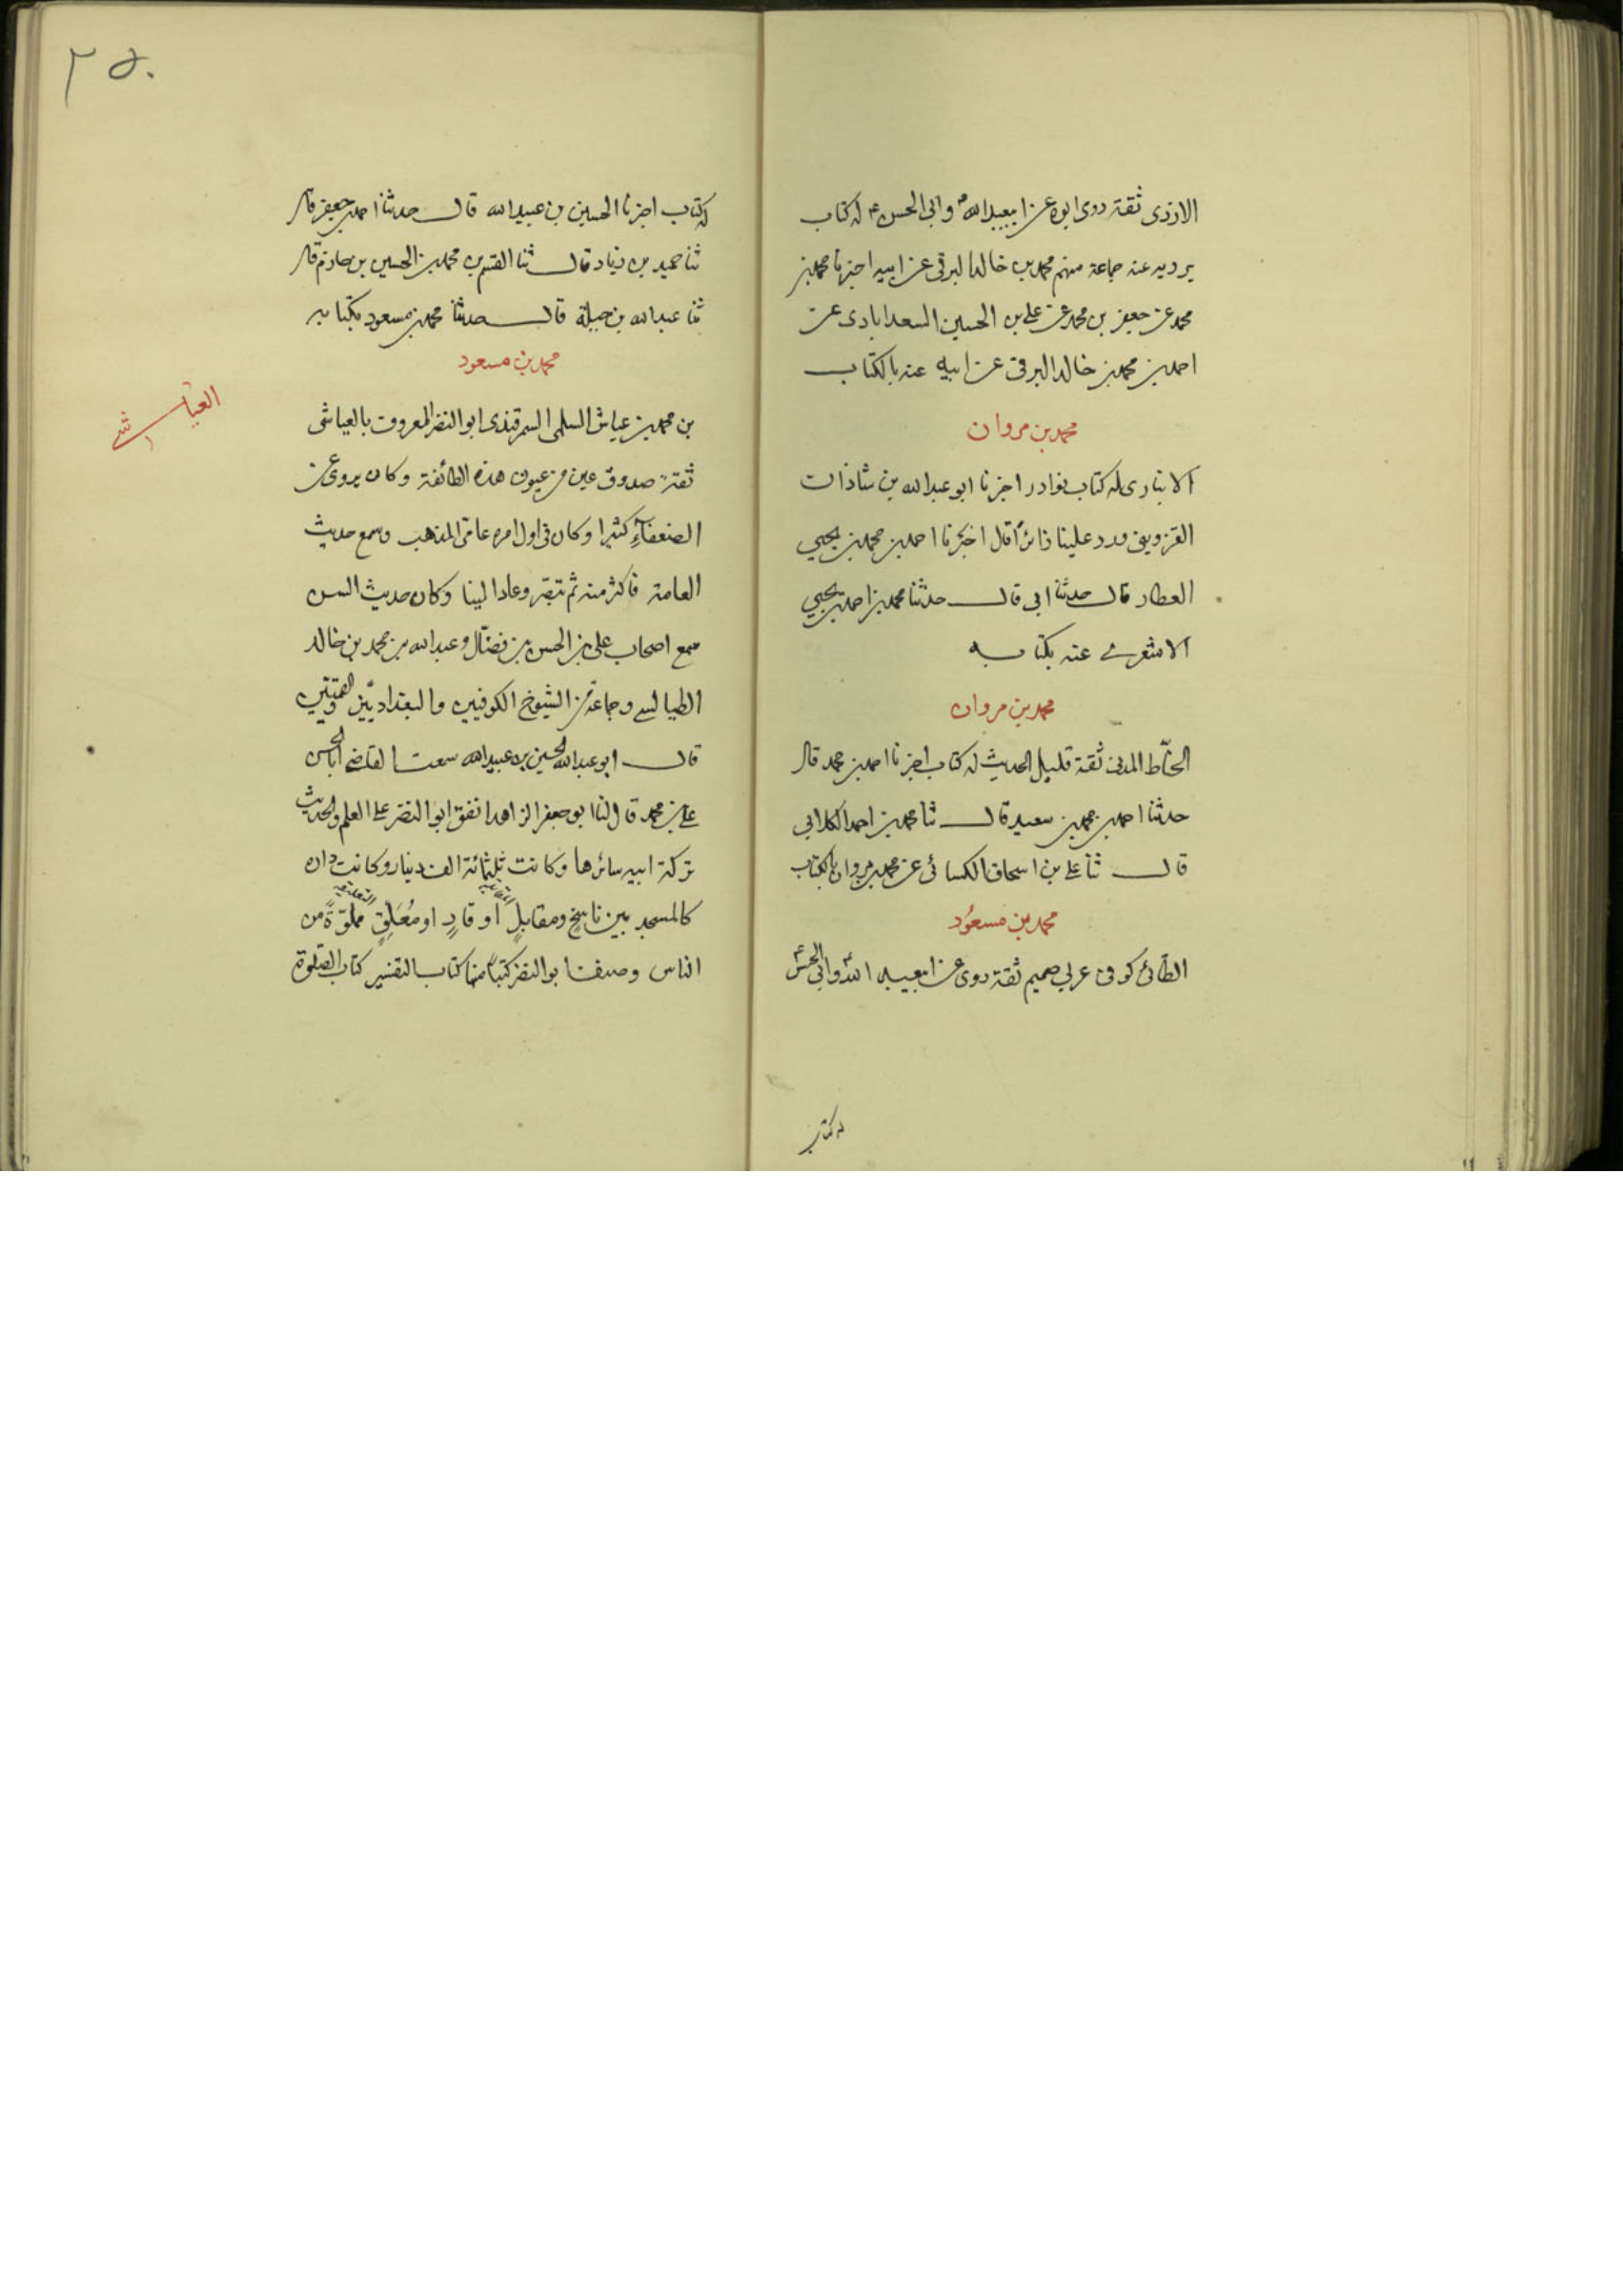 الازدی ثقة روی ابوه عن ابیعبدالله ع و ابی الحسن ع له کتاب
یرویه عنه جماعة منهم محمد بن خالد البرقی عن ابیه اخبرنا محمد بن
محمد عن جعفر بن محمد عن علی بن الحسین السعدابادی عن
احمد بن محمد بن خالد البرقی عن ابیه عنه بالکتاب
محمد بن مروان
الانباری له کتاب نوادر اخبرنا ابو عبدالله بن شاذان
القزوینی ورد علینا زائراً قال اخبرنا احمد بن محمد بن یحیی
العطار قال حدثنا ابی قال حدثنا محمد بن احمد بن یحیی
الاشعری عنه بکتابه
محمد بن مروان
الحنّاط المدنی ثقة قلیل الحدیث له کتاب اخبرنا احمد بن محمد قال
حدثنا احمد بن محمد بن سعید قال ثنا محمد بن احمد الکلابی
قال ثنا علی بن اسحاق الکسائی عن محمد بن مروان بالکتاب
محمد بن مسعُود
الطائی کوفی عربی صمیم ثقة روی عن ابیعبد الله و ابی الحسن ع
له کتاب
۲۵۰
له کتاب اخبرنا الحسین بن عبیدالله قال حدثنا احمد بن جعفر قال
ثنا حمید بن زیاد قال ثنا القسم بن محمد بن الحسین بن حازم قال
ثنا عبدالله بن جبلة قال حدثنا محمد بن مسعود بکتابه
محمد بن مسعود
العیاشی
بن محمد بن عیاش السلمی السمرقندی ابو النضر المعروف بالعیاشی
ثقة صدوق عین من عیون هذه الطائفة و کان یروی عن
الضعفآءِ کثیرا و کان فی اول امره عامی المذهب و سمع حدیث
العامة فاکثر منه ثم تبصّر و عاد الینا و کان حدیث السن
سمع اصحاب علی بن الحسن بن فضّال و عبدالله بن محمد بن خالد
الطیالسی و جماعة من الشیوخ الکوفیین و البغدادیّین و القمیّین
قال ابو عبدالله الحسین بن عبیدالله سمعت القاضی ابا الحسن
علی بن محمد قال لنا ابو جعفر الزاهد انفق ابو النضر علی العلم و الحدیث
ترکة ابیه سائرها و کانت ثلثمائة الف دینار و کانت داره
کالمسجد بین ناسخٍ و مقابلٍ او قارٍ او مُعَلِّقٍ مملوّةً من
الناس و صنف ابو النضر کتباً منها کتاب التفسیر کتاب الصلوة